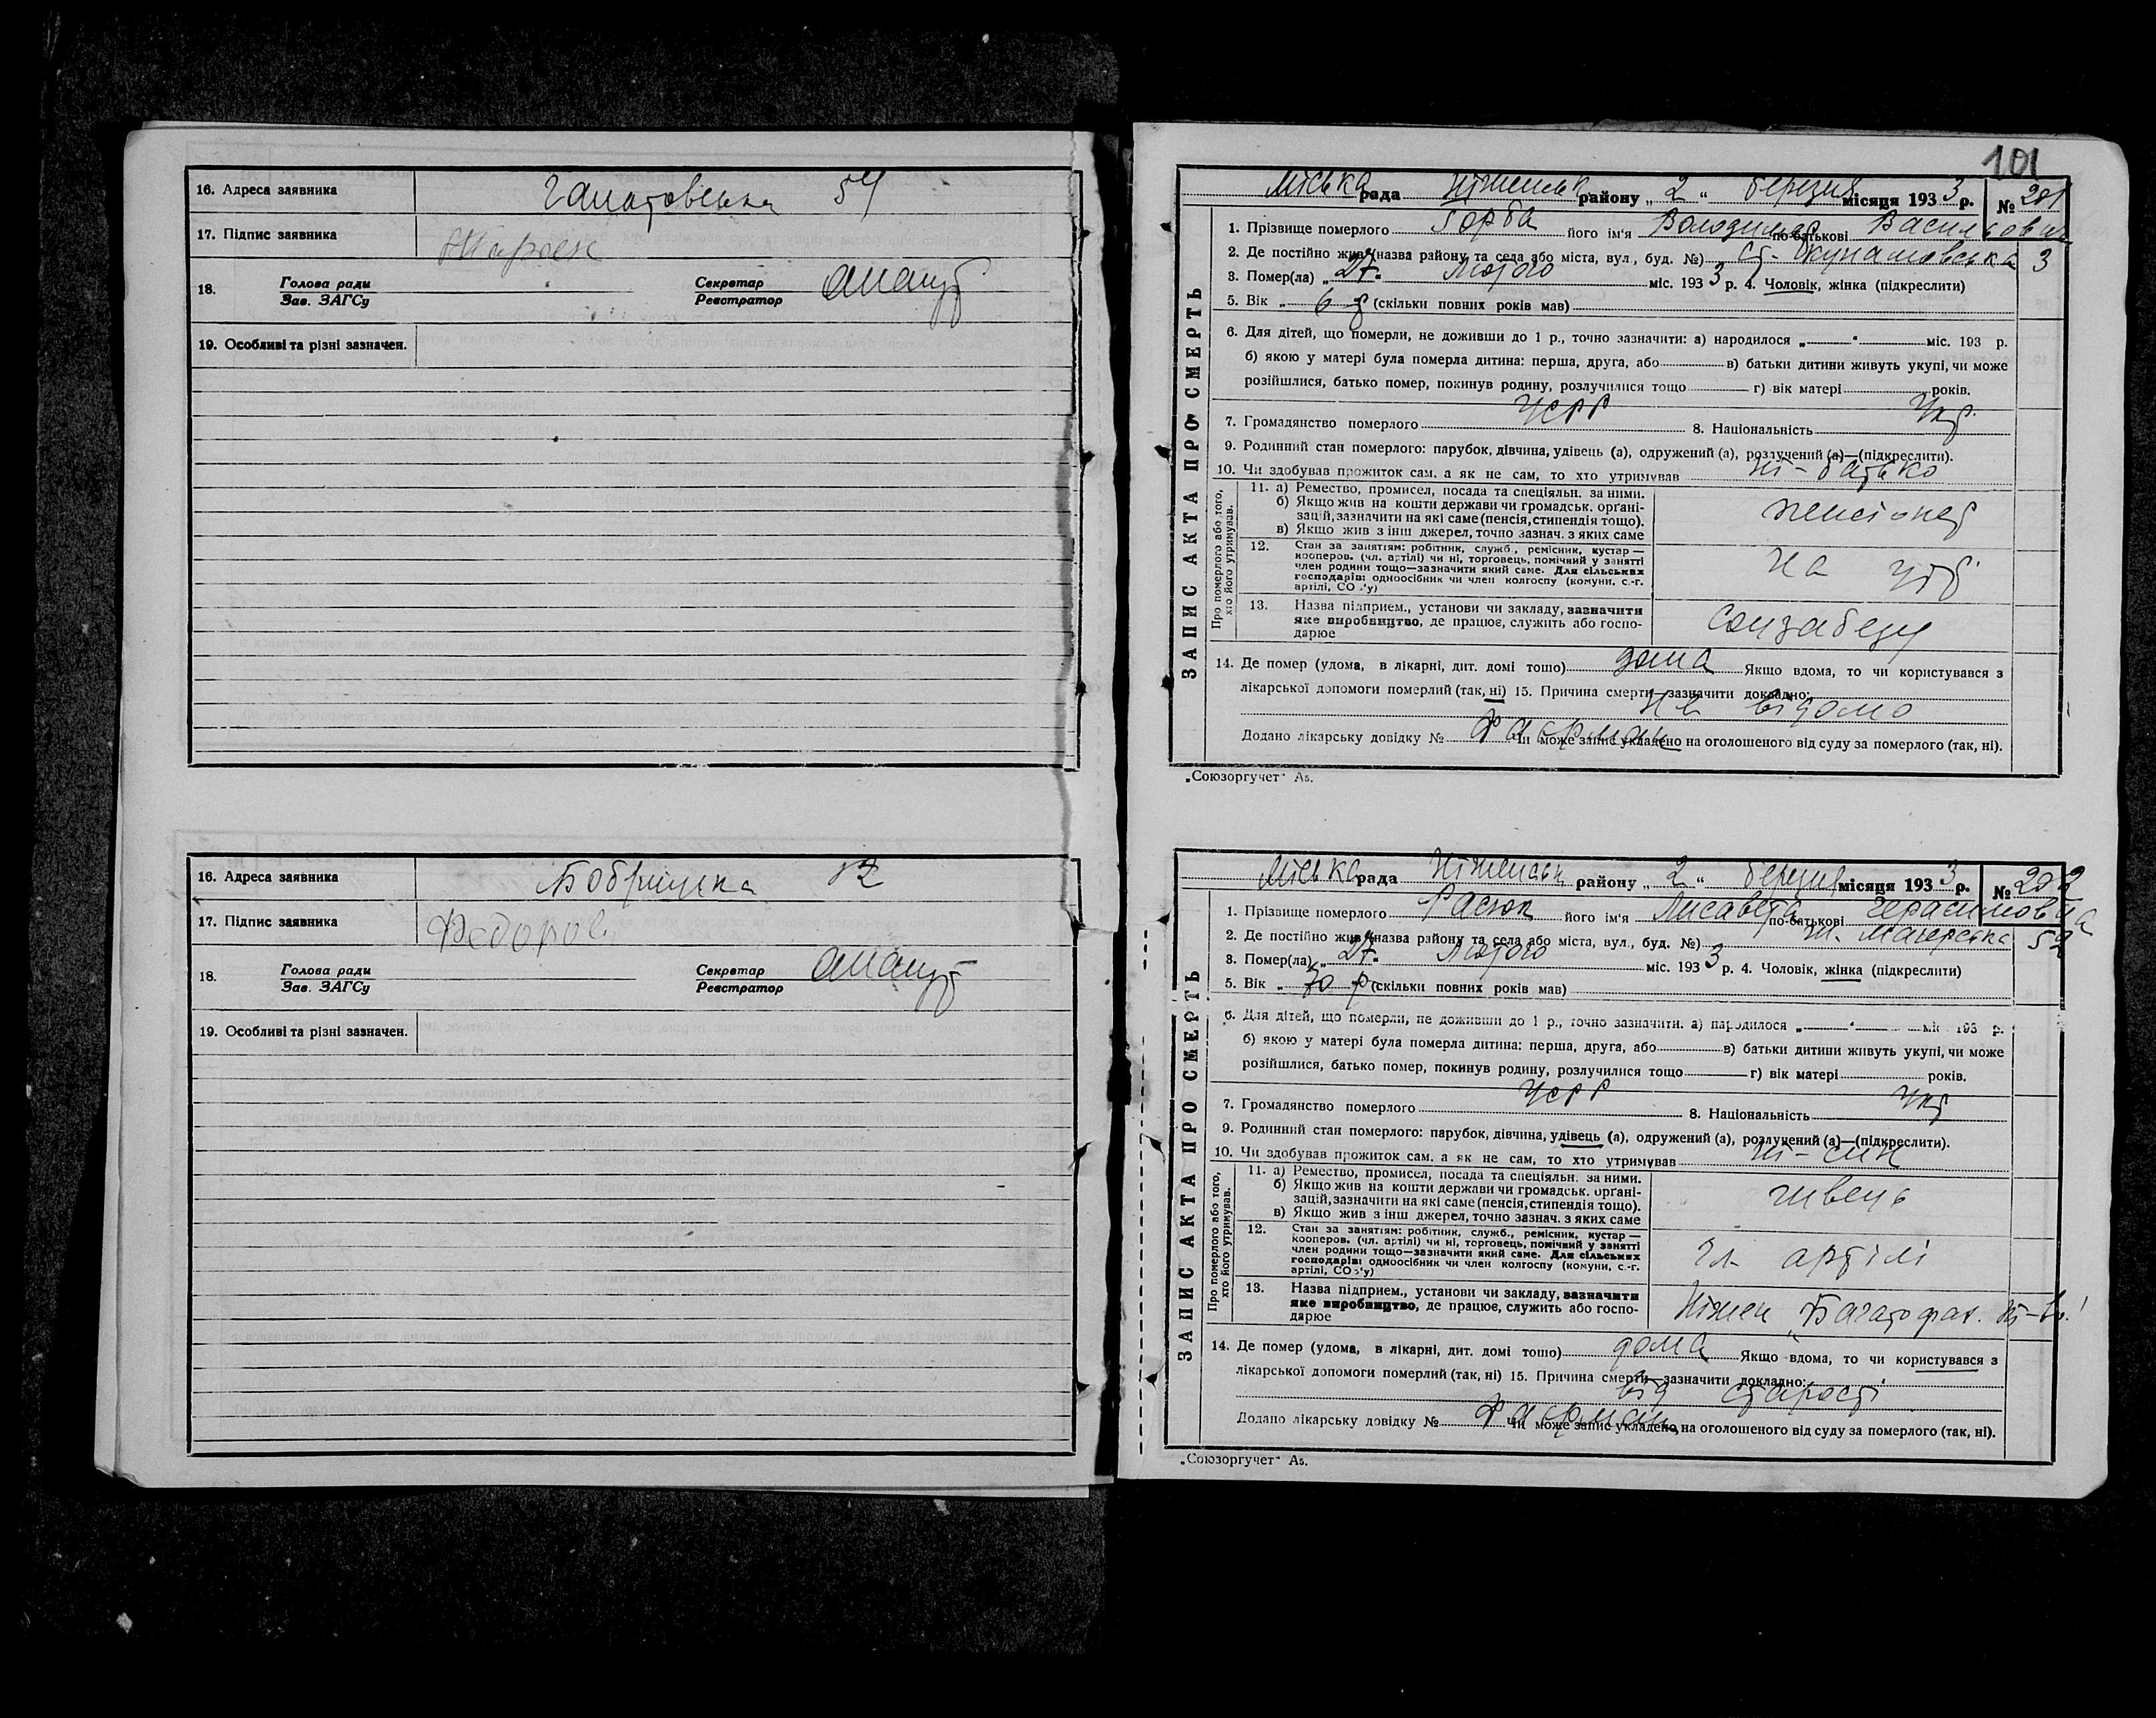 16. Адреса заявника 54
17. Підпис заявника
18. Голова ради Зав. ЗАГСу Секретар Реєстратор
19. Особливі та різні зазначен.
16. Адреса заявника Бобрицька 12
17. Підпис заявника Федоров
18. Голова ради Зав. ЗАГСу Секретар Реєстратор
19. Особливі та різні зазначен.
101
Міська рада Ніженськ району „ 2 “ березня місяця 193 3 р. № 201
ЗАПИС АКТА ПРО СМЕРТЬ
1. Прізвище померлого Горба його ім'я Володимир по-батькові Васильович
2. Де постійно жив (назва району та села або міста, вул., буд. №) 3
3. Помер(ла) „ 27 “ Лютого міс. 193 3 р. 4. Чоловік, жінка (підкреслити)
5. Вік „ 6 р (скільки повних років мав)
6. Для дітей, що померли, не доживши до 1 р., точно зазначити: а) народилося „ “ міс. 193 р.
б) якою у матері була померла дитина: перша, друга, або в) батьки дитини живуть укупі, чи може
розійшлися, батько помер, покинув родину, розлучилися тощо г) вік матері років.
7. Громадянство померлого УСРР 8. Національність Укр.
9. Родинний стан померлого: парубок, дівчина, удівець (а), одружений (а), розлучений (а)—(підкреслити).
10. Чи здобував прожиток сам, а як не сам, то хто утримував ні - батько
Про померлого або того, хто його утримував.
11. а) Ремество, промисел, посада та спеціяльн. за ними.
б) Якщо жив на кошти держави чи громадськ. орґані-
зацій, зазначити на які саме (пенсія, стипендія тощо).
в) Якщо жив з інш джерел, точно зазнач. з яких саме
пенсіонер
12. Стан за заняттям: робітник, служб., ремісник, кустар —
кооперов. (чл. артілі) чи ні, торговець, помічний у занятті
член родини тощо—зазначити який саме. Для сільських
господарів: одноосібник чи член колгоспу (комуни, с.-г.
артілі, СОЗ'у)
на утр
13. Назва підприєм., установи чи закладу, зазначити
яке виробництво, де працює, служить або госпо-
дарює
Соцзабезу
14. Де помер (удома, в лікарні, дит. домі тощо) дома Якщо вдома, то чи користувався з
лікарської допомоги померлий (так, ні) 15. Причина смерти—зазначити докладно:
не відомо
Додано лікарську довідку № Чи може запис укладено на оголошеного від суду за померлого (так, ні).
„Союзоргучет“ А5.
Міська рада Ніженськ району „ 2 “ березня місяця 193 3 р. № 202
ЗАПИС АКТА ПРО СМЕРТЬ
1. Прізвище померлого Расюк його ім'я Лисавета по-батькові Герасимовна
2. Де постійно жив (назва району та села або міста, вул., буд. №) Магерська 52
3. Помер(ла) „ 27 “ Лютого міс. 193 3 р. 4. Чоловік, жінка (підкреслити)
5. Вік „ 70 р (скільки повних років мав)
6. Для дітей, що померли, не доживши до 1 р., точно зазначити: а) народилося „ “ міс. 193 р.
б) якою у матері була померла дитина: перша, друга, або в) батьки дитини живуть укупі, чи може
розійшлися, батько помер, покинув родину, розлучилися тощо г) вік матері років.
7. Громадянство померлого УСРР 8. Національність Укр
9. Родинний стан померлого: парубок, дівчина, удівець (а), одружений (а), розлучений (а)—(підкреслити).
10. Чи здобував прожиток сам, а як не сам, то хто утримував ні - син
Про померлого або того, хто його утримував.
11. а) Ремество, промисел, посада та спеціяльн. за ними.
б) Якщо жив на кошти держави чи громадськ. орґані-
зацій, зазначити на які саме (пенсія, стипендія тощо).
в) Якщо жив з інш джерел, точно зазнач. з яких саме
швець
12. Стан за заняттям: робітник, служб., ремісник, кустар —
кооперов. (чл. артілі) чи ні, торговець, помічний у занятті
член родини тощо—зазначити який саме. Для сільських
господарів: одноосібник чи член колгоспу (комуни, с.-г.
артілі, СОЗ'у)
чл. артілі
13. Назва підприєм., установи чи закладу, зазначити
яке виробництво, де працює, служить або госпо-
дарює
Ніжен „Багатофах.
14. Де помер (удома, в лікарні, дит. домі тощо) дома Якщо вдома, то чи користувався з
лікарської допомоги померлий (так, ні) 15. Причина смерти—зазначити докладно:
від старості
Додано лікарську довідку № Чи може запис укладено на оголошеного від суду за померлого (так, ні).
„Союзоргучет“ А5.